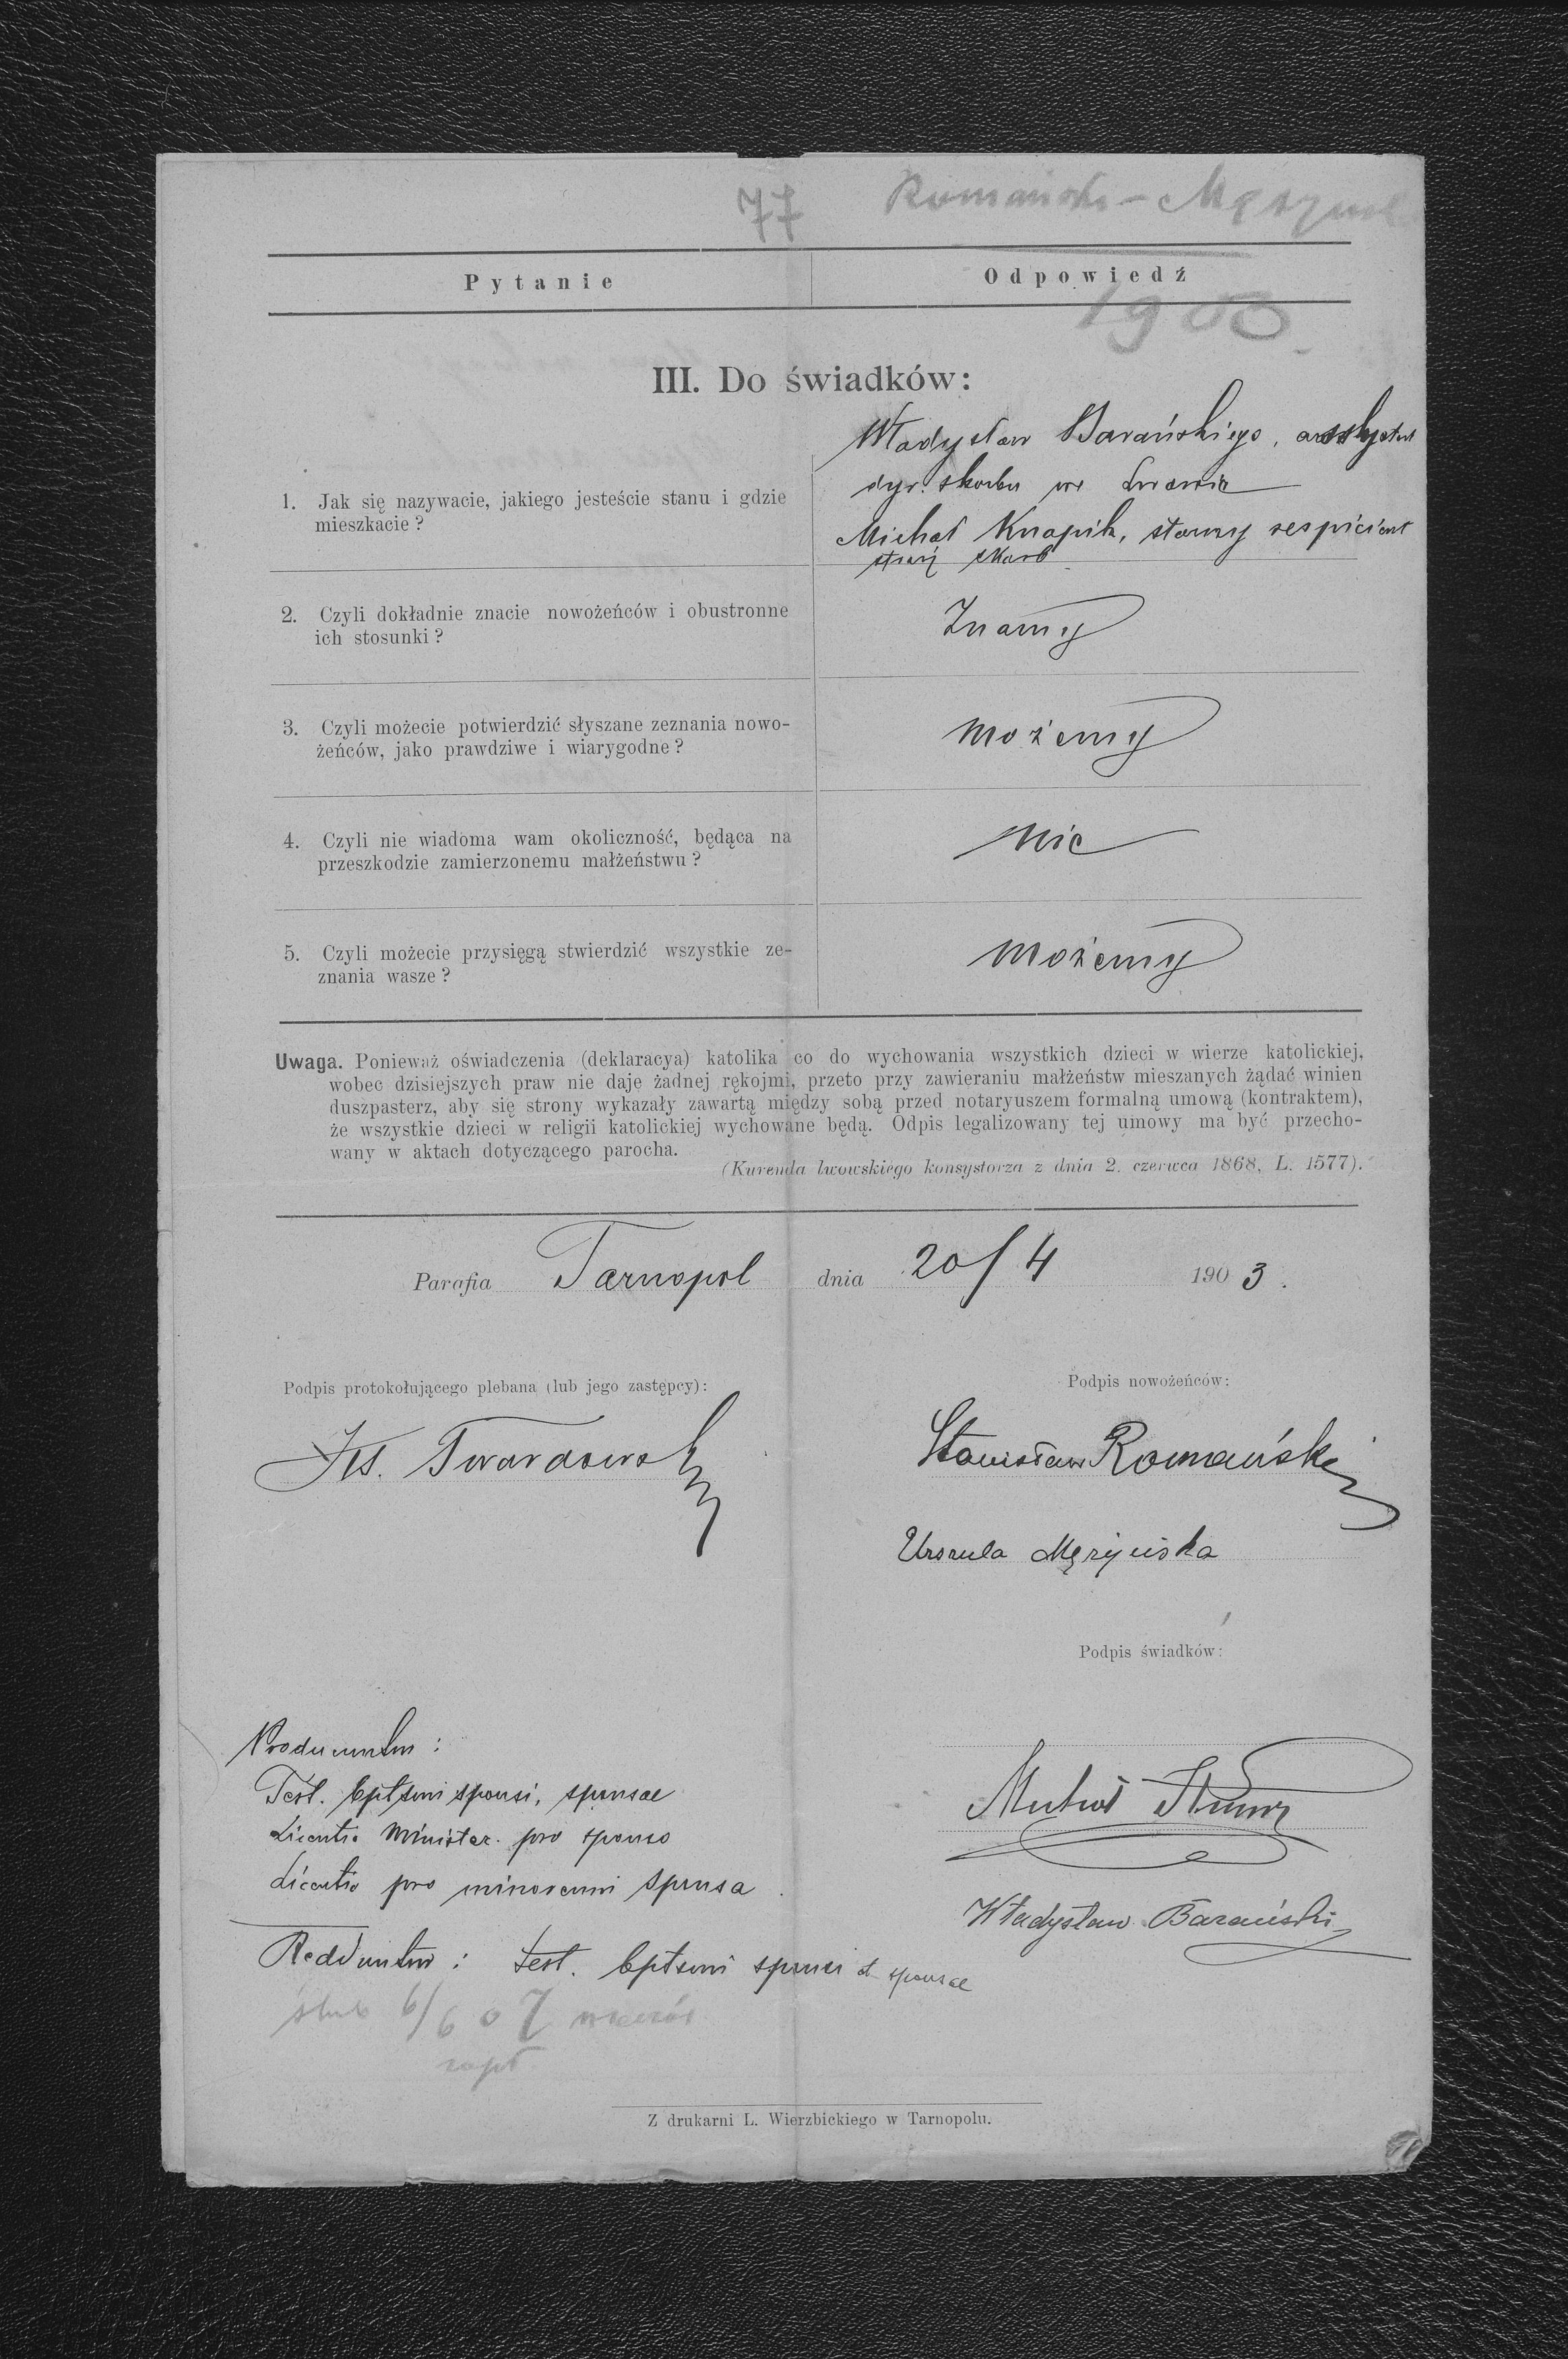 77 Romański – Męzyńsk
Pytanie
Odpowiedź
1903
III. Do świadków:
Władysław Barańskiego, assystent
dyr. skarbu we Lwowie
1. Jak się nazywacie, jakiego jesteście stanu i gdzie
mieszkacie?
Michał Knapik, starszy respicient
straży skarb.
2. Czyli dokładnie znacie nowożeńców i obustronne
ich stosunki?
Znamy
3. Czyli możecie potwierdzić słyszane zeznania nowo-
żeńców, jako prawdziwe i wiarygodne?
Możemy
4. Czyli nie wiadoma wam okoliczność, będąca na
przeszkodzie zamierzonemu małżeństwu?
Nic
5. Czyli możecie przysięgą stwierdzić wszystkie ze-
znania wasze?
Możemy
Uwaga. Ponieważ oświadczenia (deklaracya) katolika co do wychowania wszystkich dzieci w wierze katolickiej,
wobec dzisiejszych praw nie daje żadnej rękojmi, przeto przy zawieraniu małżeństw mieszanych żądać winien
duszpasterz, aby się strony wykazały zawartą między sobą przed notaryuszem formalną umową (kontraktem),
że wszystkie dzieci w religii katolickiej wychowane będą. Odpis legalizowany tej umowy ma być przecho-
wany w aktach dotyczącego parocha.
(Kurenda lwowskiego konsystorza z dnia 2. czerwca 1868, L. 1577).
Parafia Tarnopol dnia 20/4 1903.
Podpis protokołującego plebana (lub jego zastępcy):
Podpis nowożeńców:
Twardowski
Stanisław Romański
Urszula Mężyńska
Podpis świadków:
Producuntur:
Test. bptsmi sponsi, sponsae
Licentia Minister. pro sponso
Licentia pro minorenni sponsa
Michał
Władysław Barański
Redduntur: test. bptsmi sponsi et sponsae
ślub 6/6 o 7
zapł
Z drukarni L. Wierzbickiego w Tarnopolu.